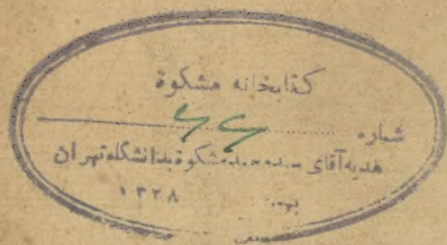 کتابخانه مشکوة
شماره ۶۶
هدیه آقای سید محمد مشکوة بدانشگاه تهران
۱۳۲۸